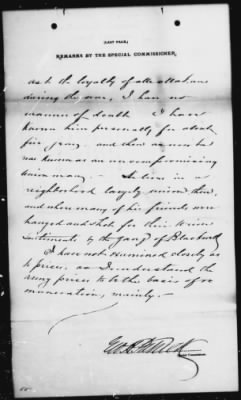 (LAST PAGE.)
REMARKS BY THE SPECIAL COMMISSIONER.
as to the loyalty of
during the war, I have no
manner of doubt I have
known him personally for about
five years and then as now he
was known as an uncompromising
Union man; - He lives in a
neighborhood largely union then,
and where many of his friends were
hanged and shot for their Union
Sentiments by the gang of
I have not examined closely as
to prices, as I understand the
army prices to be the basis of re
muneration, mainly. -
Special Commissioner.